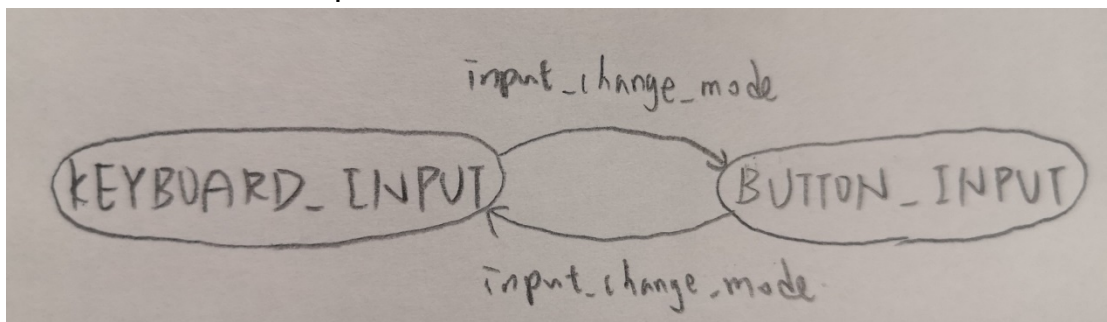 input_change_mode
KEYBOARD_INPUT
BUTTON_INPUT
input_change_mode